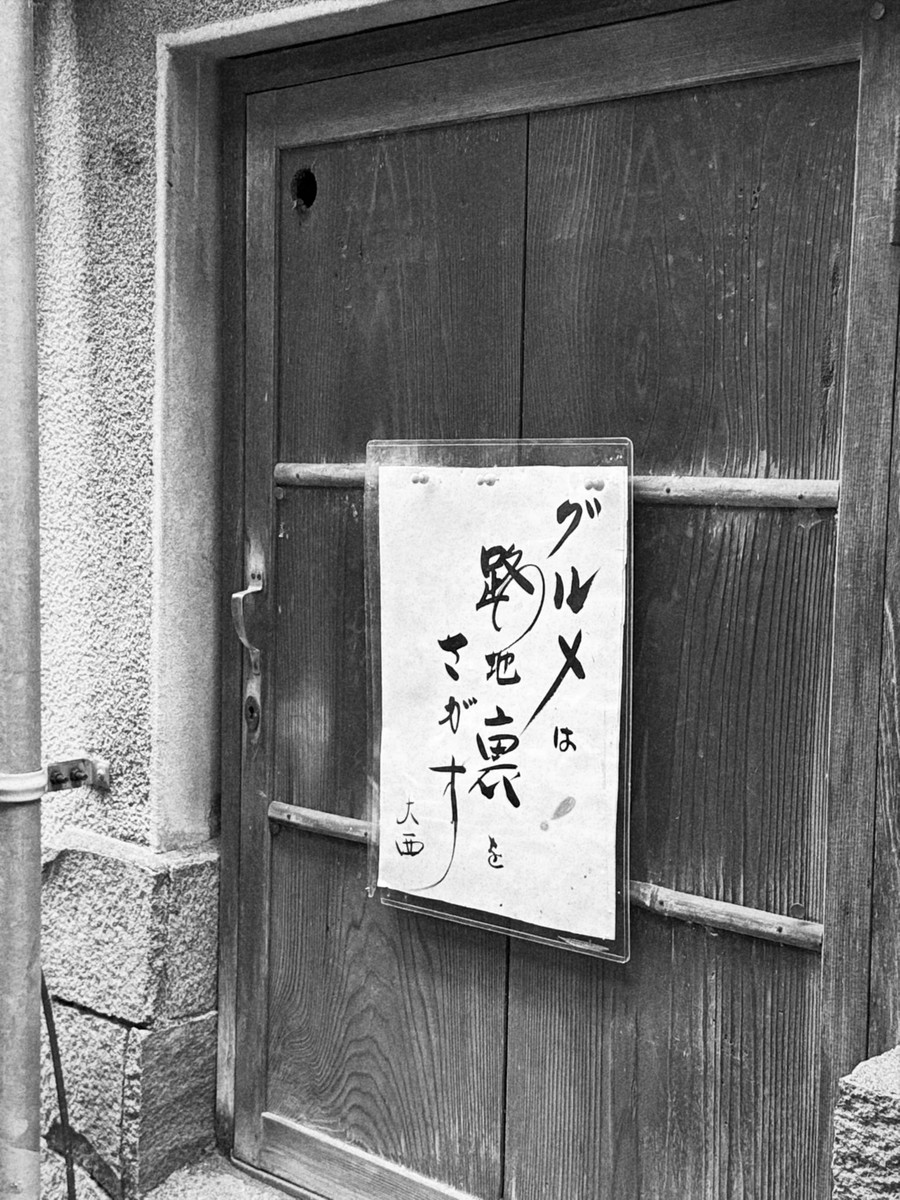 グルメは
路地裏を
さがす
大西